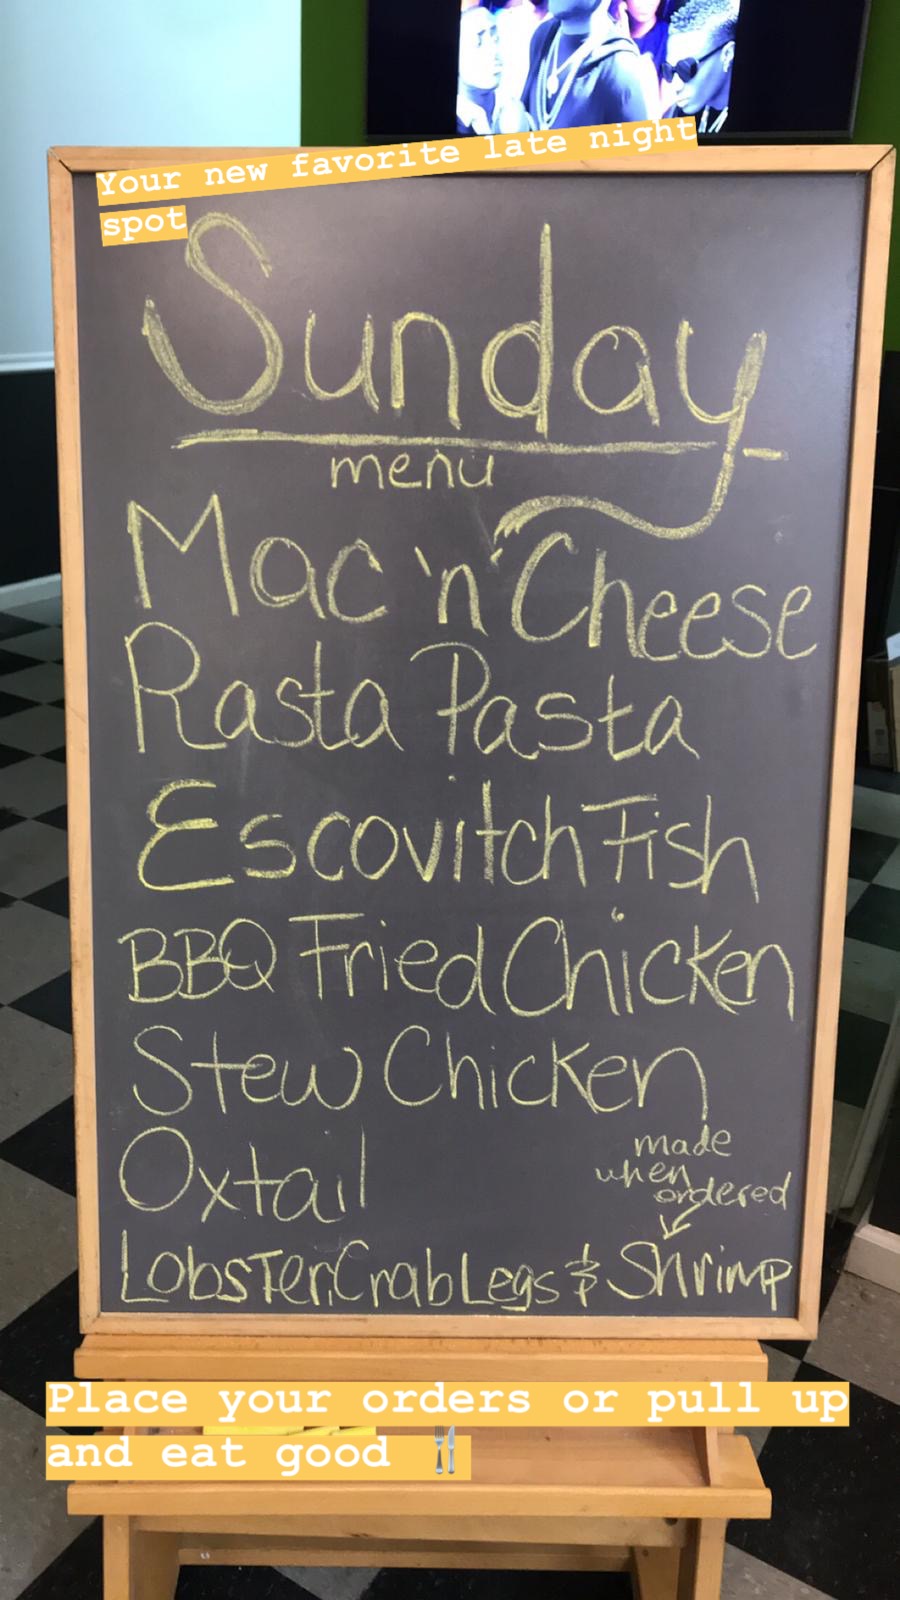 Your new favorite late night
spot
Sunday
menu
Mac 'n' Cheese
Rasta Pasta
Escovitch Fish
BBQ Fried Chicken
Stew Chicken
Oxtail
made
when
ordered
Lobster, Crab Legs & Shrimp
Place your orders or pull up
and eat good 🍴